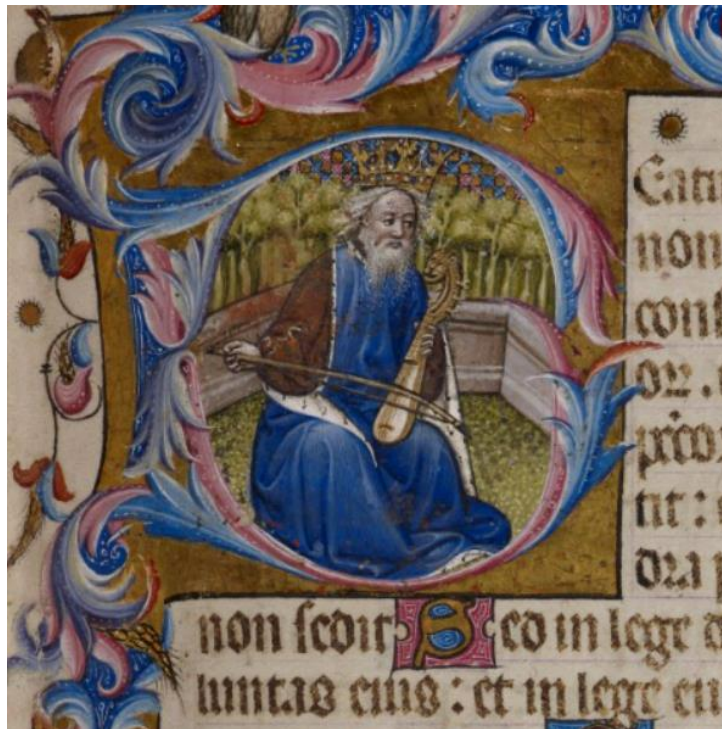 B
Eatu
non
conſ
tit :
dra
non ſedit Sed in lege d
luntas eius : et in lege eiu